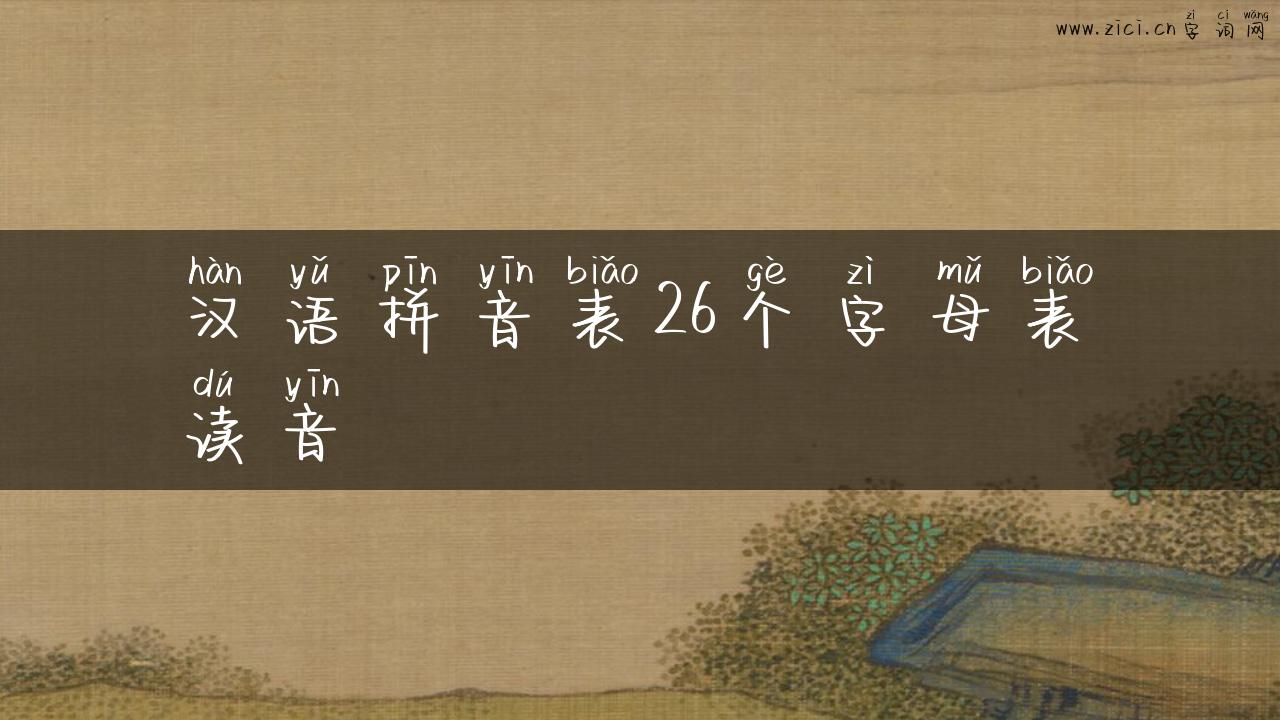 zì cí wǎng
www.zici.cn 字 词 网
hàn yǔ pīn yīn biǎo gè zì mǔ biǎo
汉 语 拼 音 表 26 个 字 母 表
dú yīn
读 音